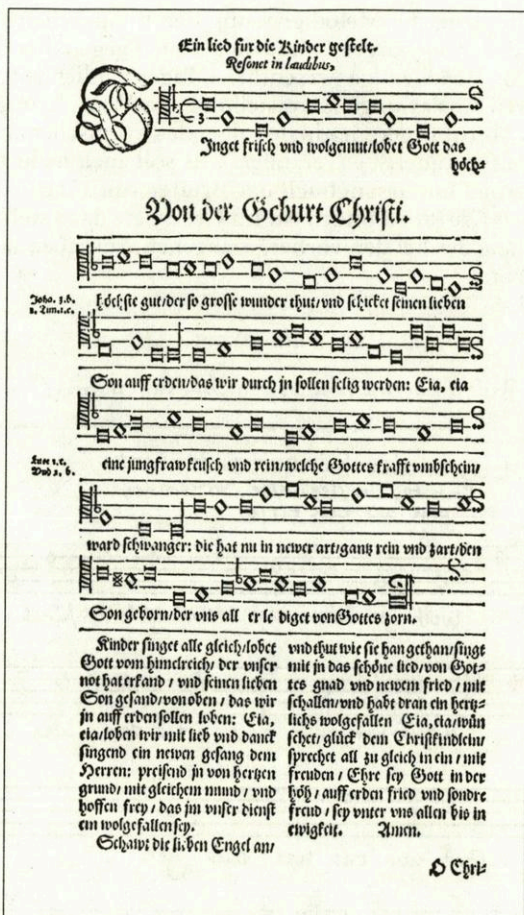 Ein lied fur die Kinder gestelt.
Resonet in laudibus.
SInget frisch vnd wolgemut/lobet Gott das
höch-
Von der Geburt Christi.
Joha. 3. b.
1. Tim. 1. c.
höchste gut/der so grosse wunder thut/vnd schicket seinen lieben
Son auff erden/das wir durch jn sollen selig werden: Eia, eia
eine jungfraw keusch vnd rein/welche Gottes krafft vmbschein/
Luce 1. c.
Vnd 2. b.
ward schwanger: die hat nu in newer art/gantz rein vnd zart/den
Son geborn/der vns all er le diget von Gottes zorn.
Kinder singet alle gleich/lobet
Gott vom himelreich/ der vnser
not hat erkand / vnd seinen lieben
Son gesand/von oben / das wir
jn auff erden sollen loben: Eia,
eia/loben wir mit lieb vnd danck
singend ein newen gesang dem
Herren: preisend jn von hertzen
grund/ mit gleichem mund / vnd
hoffen frey / das jm vnser dienst
ein wolgefallen sey.
Schawt die lieben Engel an/
vnd thut wie sie han gethan/singt
mit jn das schöne lied/von Got-
tes gnad vnd newem fried / mit
schallen/vnd habt dran ein hertz-
lichs wolgefallen Eia,eia/wün
schet/ glück dem Christkindlein/
sprechet all zu gleich in ein / mit
freuden / Ehre sey Gott in der
höh / auff erden fried vnd sondre
freud / sey vnter vns allen bis in
ewigkeit. Amen.
O Chri-